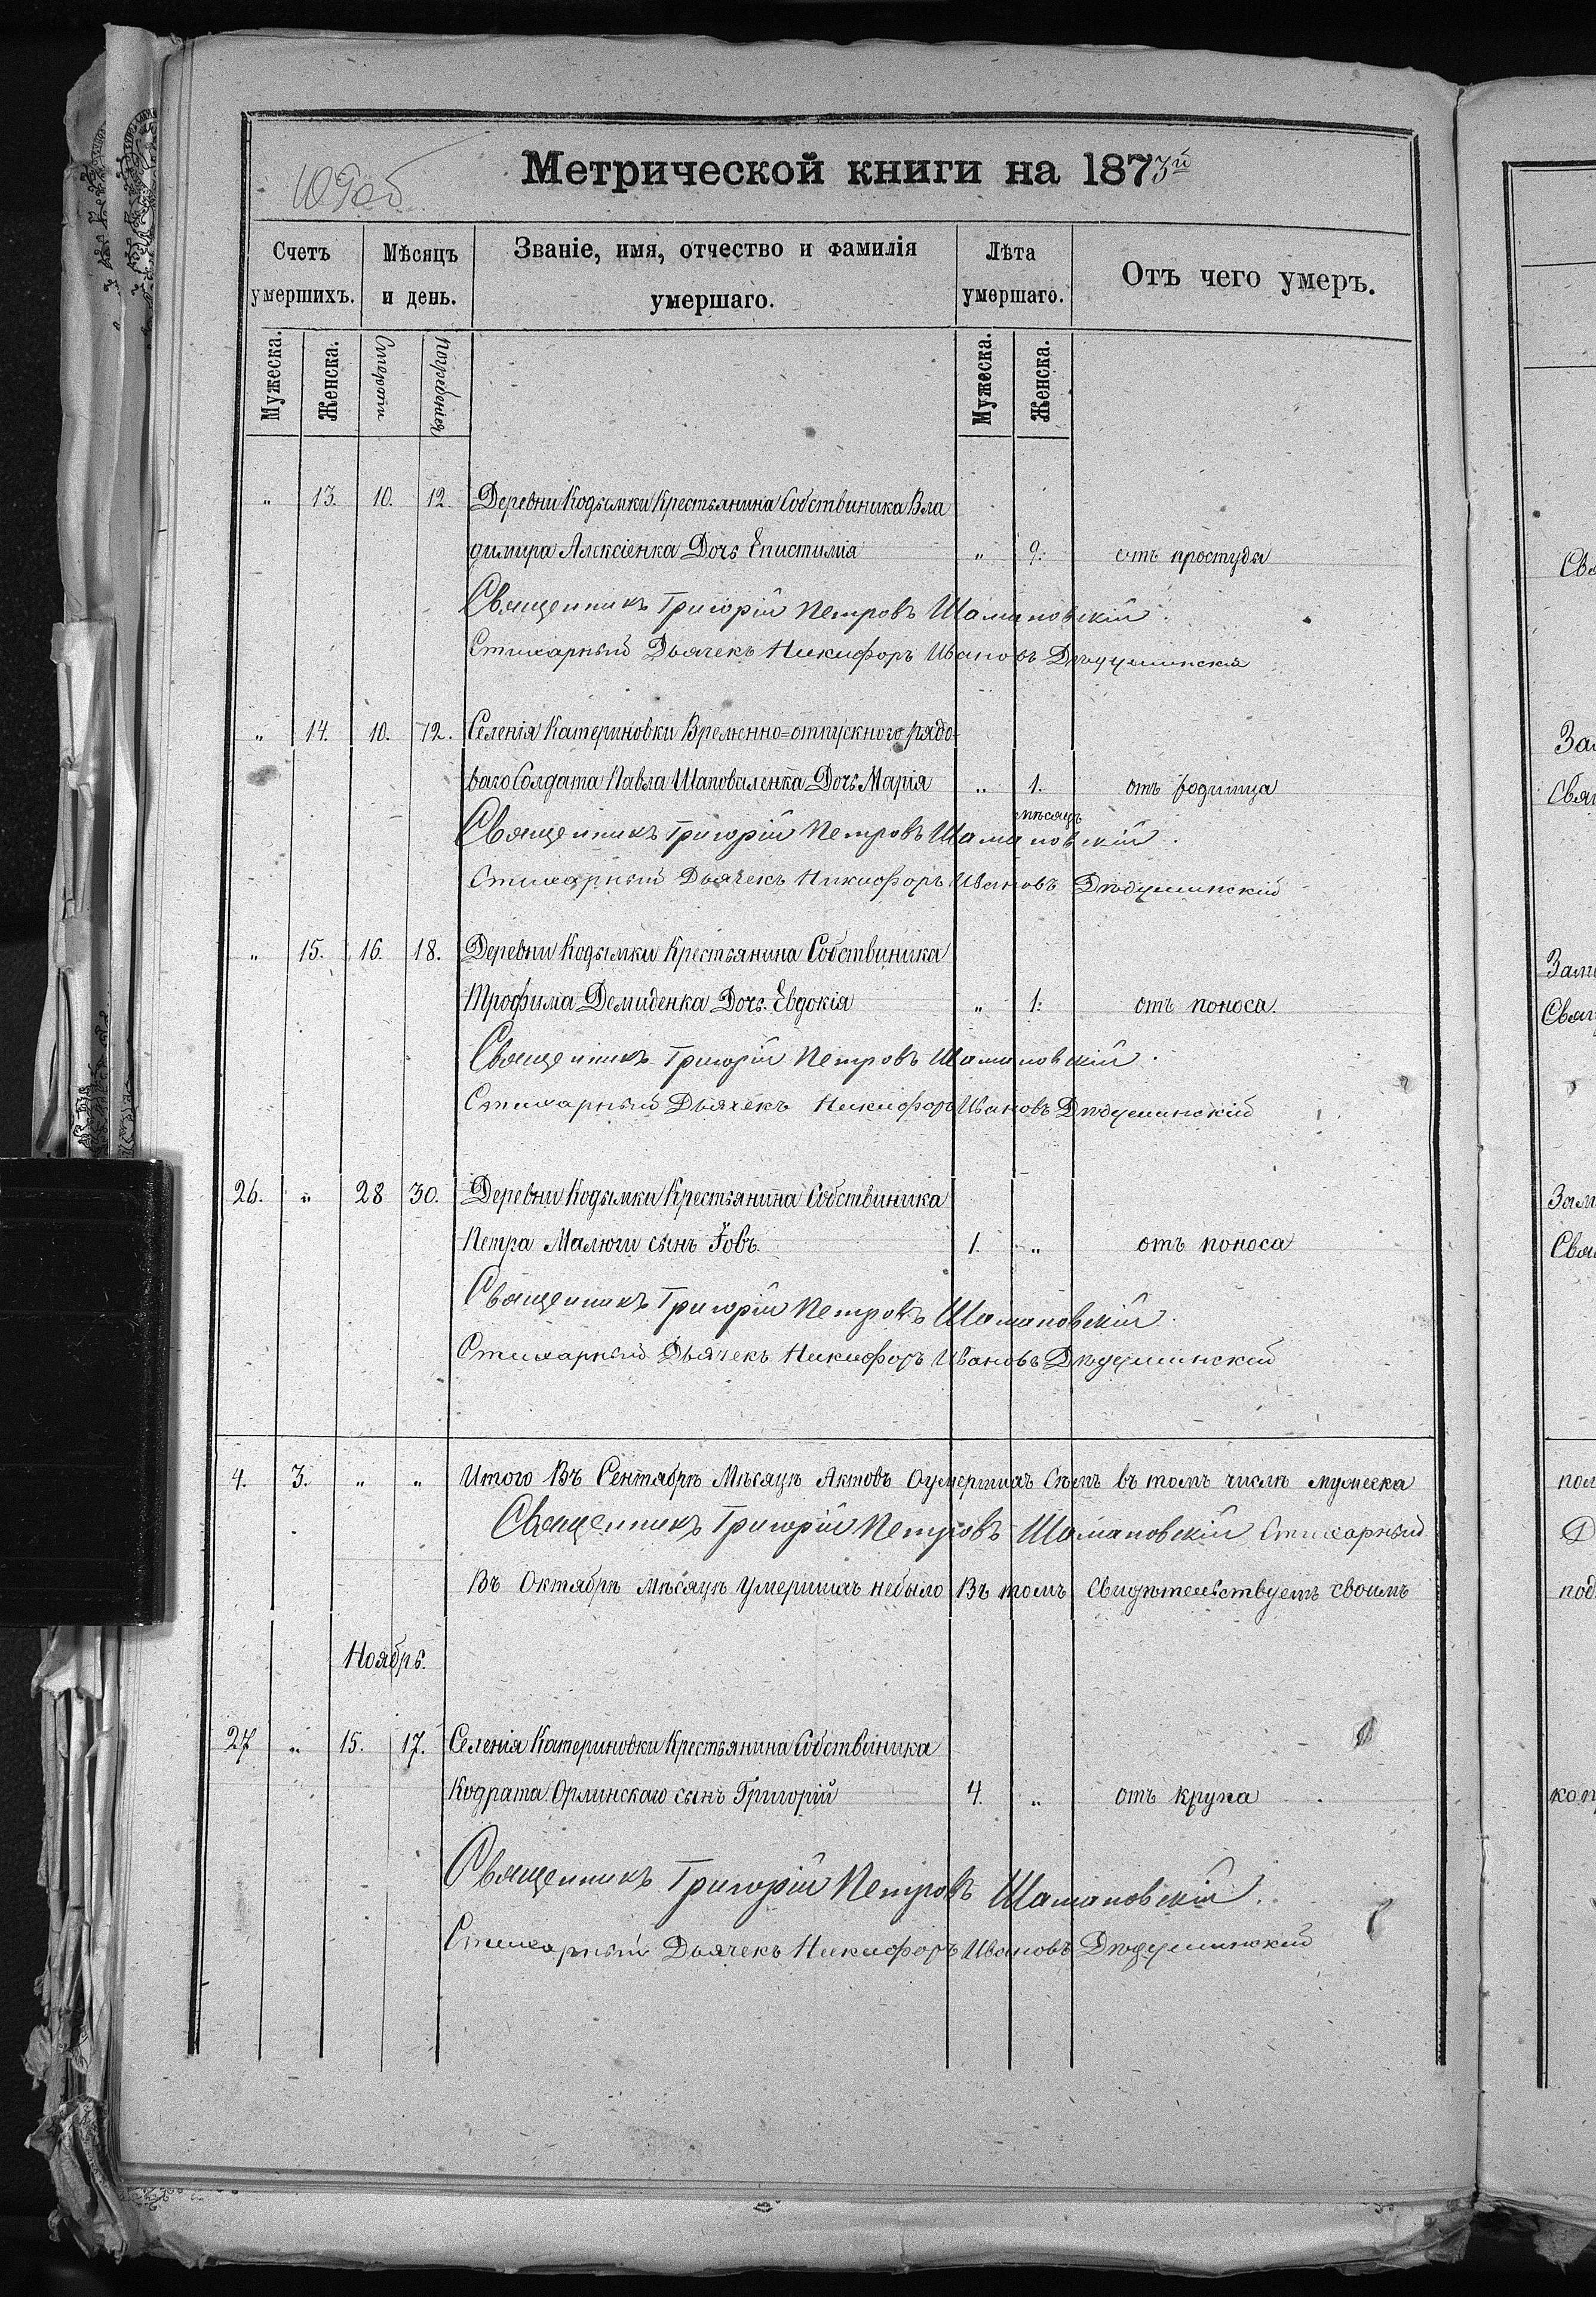 Метрической книги на 1873й
Счетъ умершихъ. Мѣсяцъ и день. Званіе, имя, отчество и фамилія умершаго. Лѣта умершаго. Отъ чего умеръ.
Мужеска. Женска. Смерти Погребенія Мужеска. Женска.
" 13. 10. 12. Деревни Кодымки Крестьянина Собствиника Вла
димира Алексіенка Дочь Епистимія " 9. отъ простуды
Священникъ Григорій Петровъ Шамановскій.
Стихарный Дьячекъ Никифоръ Ивановъ
" 14. 10. 12. Селенія Катериновки Временно=отпускного рядо-
ваго Солдата Павла Шаповаленка Дочь Марія " 1. отъ родимца
мѣсяцъ
Священникъ Григорій Петровъ Шамановскій.
Стихарный Дьячекъ Никифоръ Ивановъ
" 15. 16. 18. Деревни Кодымки Крестьянина Собствиника
Трофима Демиденка Дочь Евдокія " 1. отъ поноса.
Священникъ Григорій Петровъ Шамановскій.
Стихарный Дьячекъ Никифоръ Ивановъ
26. " 28 30. Деревни Кодымки Крестьянина Собствиника
Петра Малюги сынъ Іовъ. 1. " отъ поноса
Священникъ Григорій Петровъ Шамановскій.
Стихарный Дьячекъ Никифоръ Ивановъ
4. 3. " " Итого Въ Сентябрѣ Мѣсяцѣ Актовъ Оумершихъ Сѣмъ въ томъ числѣ мужеска
Священникъ Григорій Петровъ Шамановскій Стихарный
Въ Октябрѣ мѣсяцѣ умершихъ небыло Въ томъ Свидѣтельствуемъ своимъ
Ноябрь.
27 " 15. 17. Селенія Катериновки Крестьянина Собствиника
Кодрата Орлинскаго сынъ Григорій 4. " отъ крупа
Священникъ Григорій Петровъ Шамановскій.
Стихарный Дьячекъ Никифоръ Ивановъ